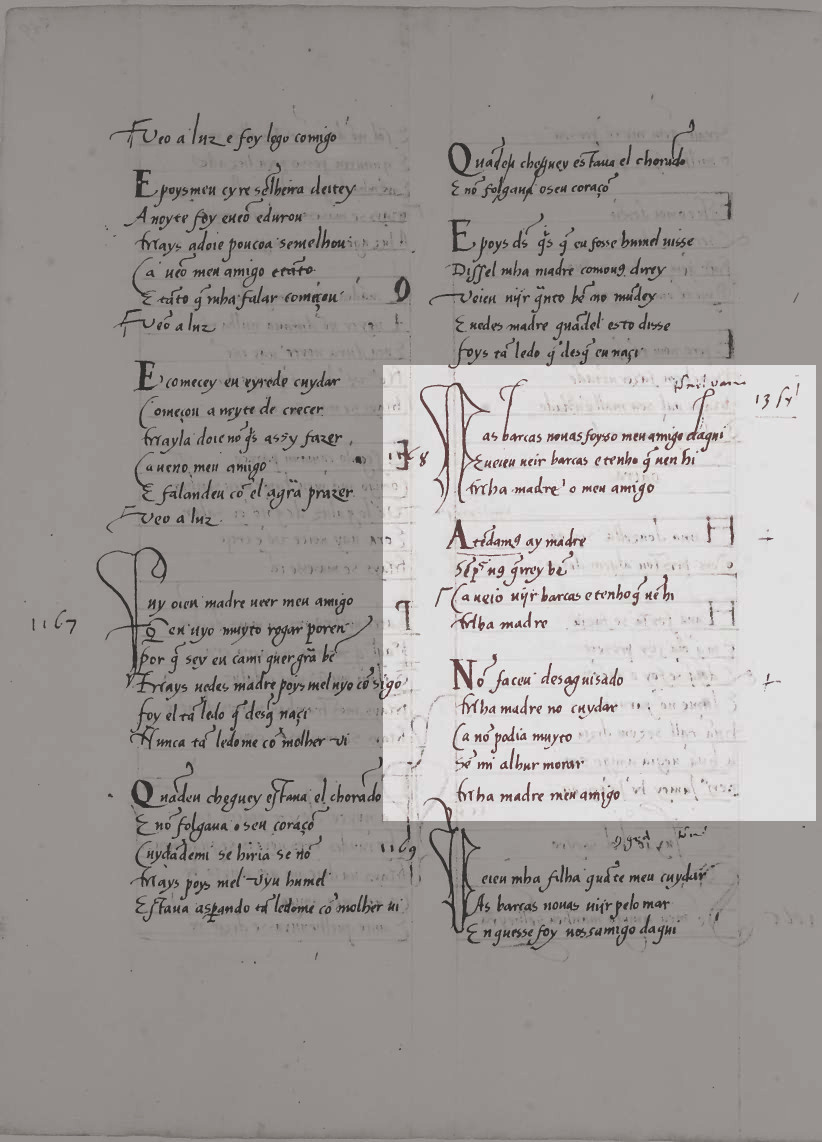 Fveo a luz e foy logo comigo
E poys meu cyre selheira deitey
A noyte foy eueo edurou
Mays adoie poucoa semelhou
Ca ueo meu amigo e tāto
E tāto q̄ mha falar começou
Fveo a luz
E comecey eu eyrede cuydar
Começou a noyte de crecer
Mayla doie nō q̄s assy fazer
Ca ueno meu amigo
E falandeu cō el agrā prazer
Fveo a luz
1167
Muy oien madre ueer meu amigo
Q̄ en uyo muyto rogar poren
Por q̄ sey eu cami quer grā bē
Mays uedes madre poys mel uyo cōsigo
Foy el tā ledo q̄ desq̄ naçi
Nunca tā ledome cō molher vi
Quādeu cheguey estaua el chorādo
E nō folgaua o seu coraçō
Cuydādemi se hiria se nō
Mays poys mel vyu humel
Estaua asp̄ando tā ledome cō molher ui
Quādeu cheguey estaua el chorādo
E nō folgaua o seu coraçō
E poys ds̄ q̄s q̄ eu fosse humel uisse
Dissel mha madre comouꝯ direy
Veieu uijr q̄nto bē no mūdey
E uedes madre quādel esto disse
Foys tā ledo q̄ desq̄ eu naçi
1168
Pas barcas nouas foyso meu amigo daqui
E ueieu ueir barcas e tenho q̄ uen hi
Mha madre o meu amigo
Atēdamꝯ ay madre
Sēp̄ uꝯ q̄rrey bē
Ca ueio uijr barcas e tenho q̄ uē hi
Mha madre
Nō faceu desaguisado
Mha madre no cuydar
Ca nō podia muyto
Sē mi alhur morar
Mha madre meu amigo
1169
Veieu mha filha quāte meu cuydar
As barcas nouas uijr pelo mar
En quesse foy uossamigo daqui